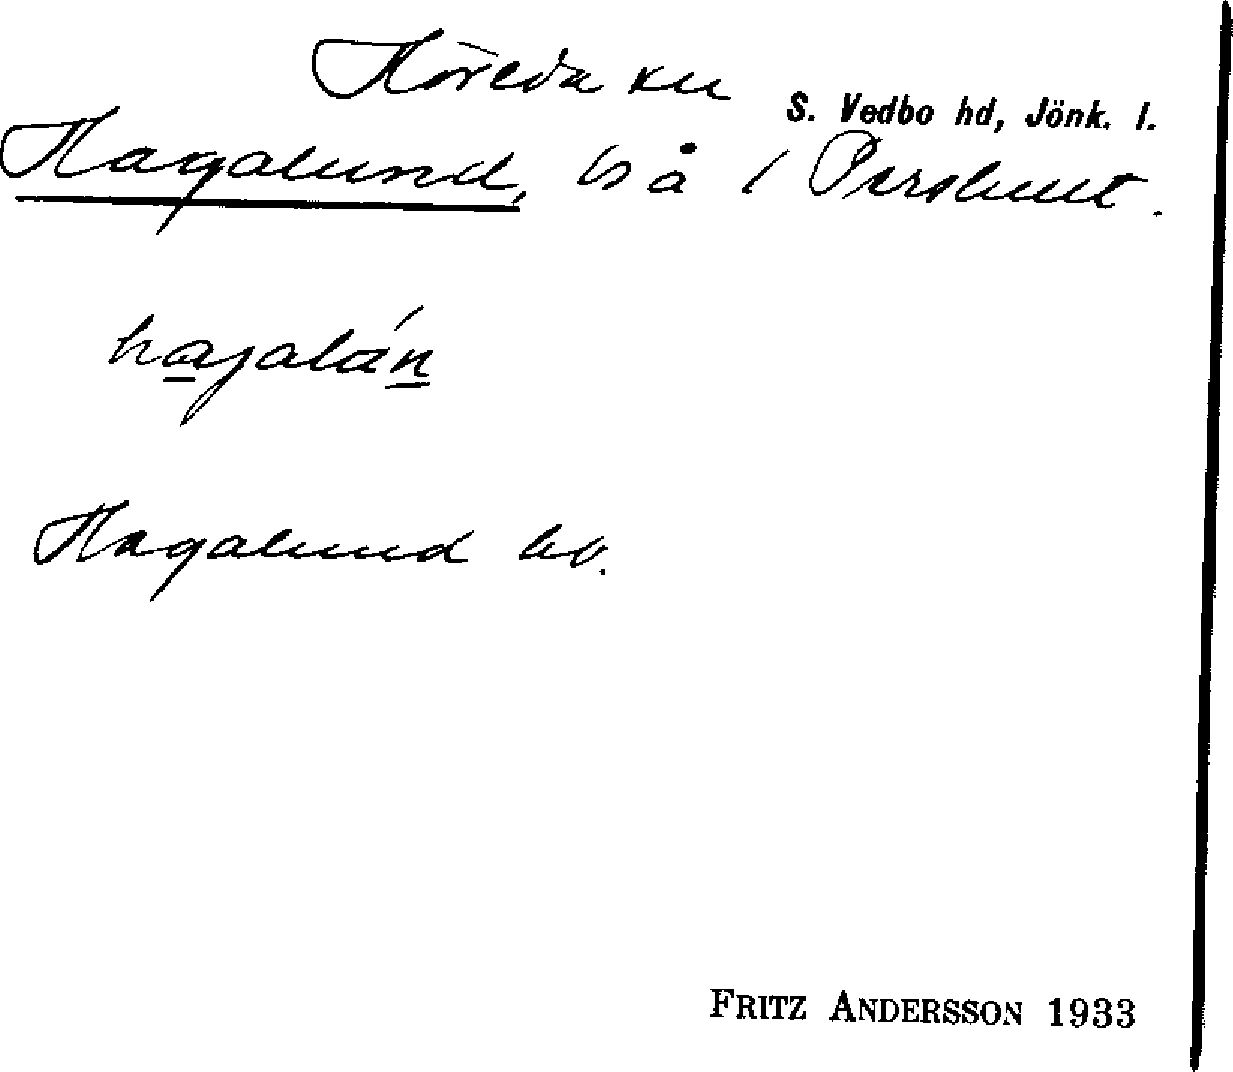 Höreda sn S. Vedbo hd, Jönk. l.
Hagalund, bs å / Pershult.
hagalún
Hagalund bs.
FRITZ ANDERSSON 1933